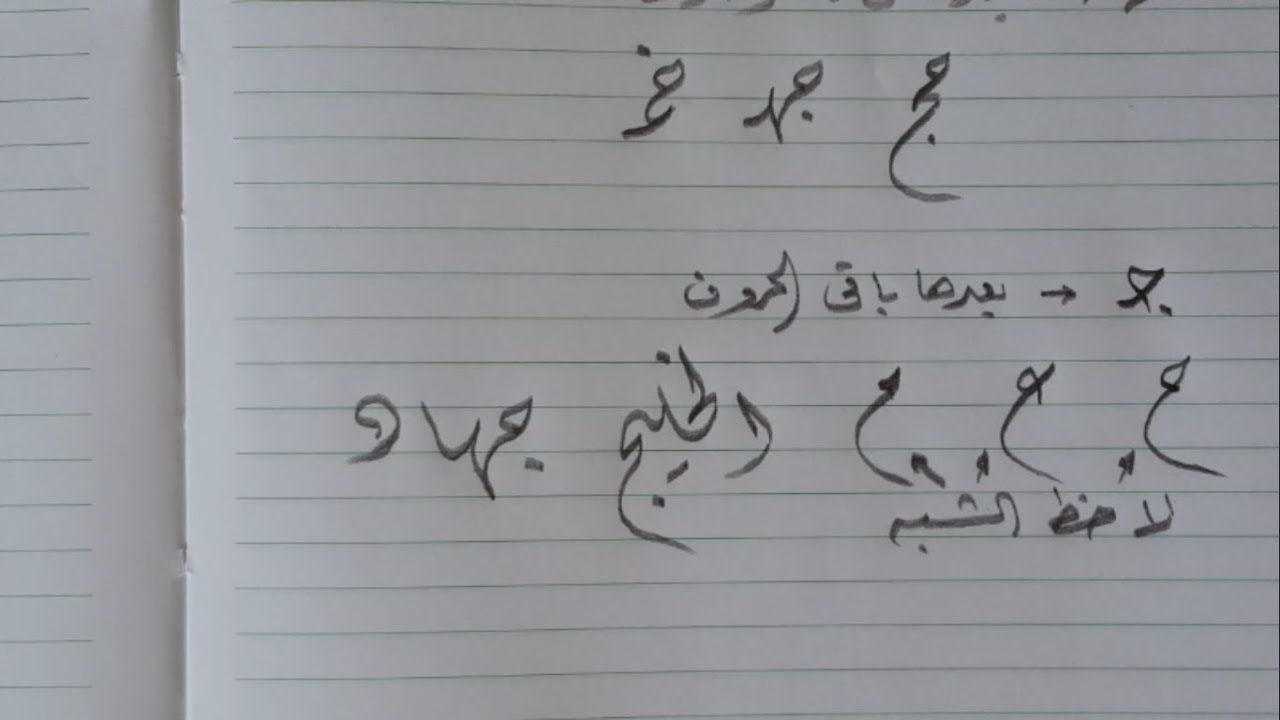 حج جهد خ
جـ → بعدها باقى الحروف
ع ح م الخليج جهاد
لاحظ الشبه